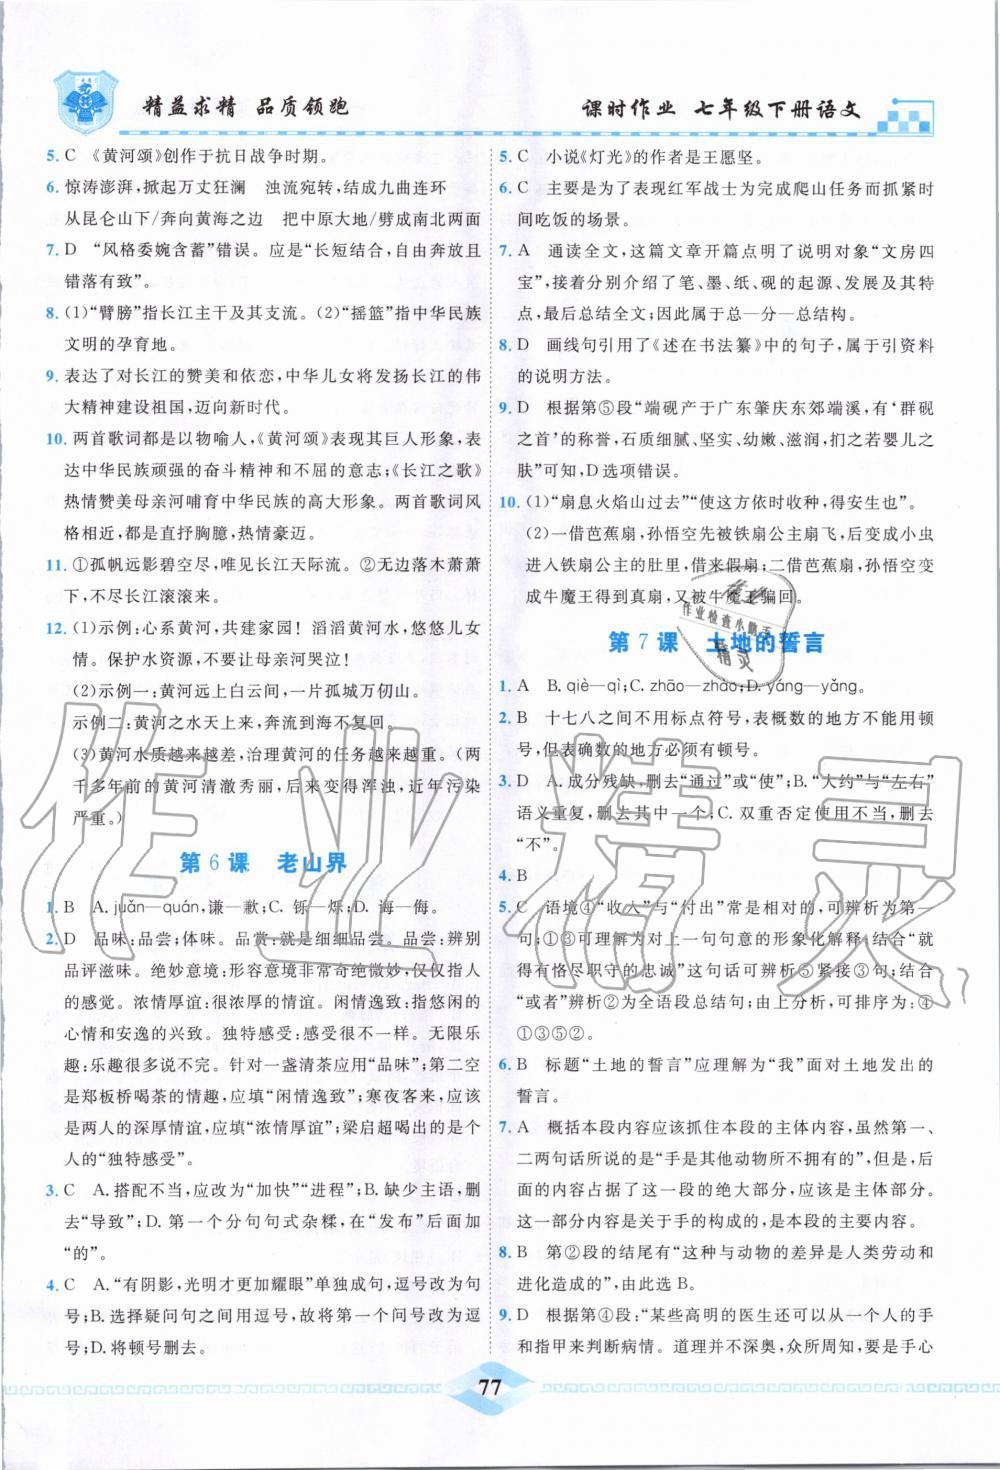 精益求精 品质领跑
课时作业 七年级下册语文
5. C 《黄河颂》创作于抗日战争时期。
6. 惊涛澎湃,掀起万丈狂澜 浊流宛转,结成九曲连环
从昆仑山下/奔向黄海之边 把中原大地/劈成南北两面
7. D “风格委婉含蓄”错误。应是“长短结合,自由奔放且
错落有致”。
8. (1)“臂膀”指长江主干及其支流。(2)“摇篮”指中华民族
文明的孕育地。
9. 表达了对长江的赞美和依恋,中华儿女将发扬长江的伟
大精神建设祖国,迈向新时代。
10. 两首歌词都是以物喻人,《黄河颂》表现其巨人形象,表
达中华民族顽强的奋斗精神和不屈的意志;《长江之歌》
热情赞美母亲河哺育中华民族的高大形象。两首歌词风
格相近,都是直抒胸臆,热情豪迈。
11. ①孤帆远影碧空尽,唯见长江天际流。②无边落木萧萧
下,不尽长江滚滚来。
12. (1)示例:心系黄河,共建家园! 滔滔黄河水,悠悠儿女
情。保护水资源,不要让母亲河哭泣!
(2)示例一:黄河远上白云间,一片孤城万仞山。
示例二:黄河之水天上来,奔流到海不复回。
(3)黄河水质越来越差,治理黄河的任务越来越重。(两
千多年前的黄河清澈秀丽,后来变得浑浊,近年污染
严重。)
第 6 课 老山界
1. B A. juǎn—quán,谦—歉;C. 铄—烁;D. 诲—侮。
2. D 品味:品尝;体味。品赏:就是细细品尝。品尝:辨别
品评滋味。绝妙意境:形容意境非常奇绝微妙,仅仅指人
的感觉。浓情厚谊:很浓厚的情谊。闲情逸致:指悠闲的
心情和安逸的兴致。独特感受:感受很不一样。无限乐
趣:乐趣很多说不完。针对一盏清茶应用“品味”;第二空
是郑板桥喝茶的情趣,应填“闲情逸致”;寒夜客来,应该
是两人的深厚情谊,应填“浓情厚谊”;梁启超喝的是个
人的“独特感受”。
3. C A. 搭配不当,应改为“加快”“进程”;B. 缺少主语,删
去“导致”;D. 第一个分句句式杂糅,在“发布”后面加
“的”。
4. C A. “有阴影,光明才更加耀眼”单独成句,逗号改为句
号;B. 选择疑问句之间用逗号,故将第一个问号改为逗
号;D. 将顿号删去。
5. C 小说《灯光》的作者是王愿坚。
6. C 主要是为了表现红军战士为完成爬山任务而抓紧时
间吃饭的场景。
7. A 通读全文,这篇文章开篇点明了说明对象“文房四
宝”,接着分别介绍了笔、墨、纸、砚的起源、发展及其特
点,最后总结全文;因此属于总—分—总结构。
8. D 画线句引用了《述在书法纂》中的句子,属于引资料
的说明方法。
9. D 根据第⑤段“端砚产于广东肇庆东郊端溪,有‘群砚
之首’的称誉,石质细腻、坚实、幼嫩、滋润,扪之若婴儿之
肤”可知,D选项错误。
10. (1)“扇息火焰山过去”“使这方依时收种,得安生也”。
(2)一借芭蕉扇,孙悟空先被铁扇公主扇飞,后变成小虫
进入铁扇公主的肚里,借来假扇;二借芭蕉扇,孙悟空变
成牛魔王得到真扇,又被牛魔王骗回。
第 7 课 土地的誓言
1. A B. qiè—qì;C. zhāo—zháo;D. yáng—yǎng。
2. B 十七八之间不用标点符号,表概数的地方不能用顿
号,但表确数的地方必须有顿号。
3. D A. 成分残缺,删去“通过”或“使”;B. “大约”与“左右”
语义重复,删去其中一个;C. 双重否定使用不当,删去
“不”。
4. B
5. C 语境④“收入”与“付出”常是相对的,可辨析为第一
句;①③可理解为对上一句句意的形象化解释;结合“就
得有恪尽职守的忠诚”这句话可辨析⑤紧接③句;结合
“或者”辨析②为全语段总结句;由上分析,可排序为:④
①③⑤②
6. B 标题“土地的誓言”应理解为“我”面对土地发出的
誓言。
7. A 概括本段内容应该抓住本段的主体内容,虽然第一、
二两句话所说的是“手是其他动物所不具备的”,但是,后
面的内容占据了这一段的绝大部分,应该是主体部分。
这一部分内容是关于手的构成的,是本段的主要内容。
8. B 第②段的结尾有“这种与动物的差异是人类劳动和
进化造成的”,由此选 B。
9. D 根据第④段:“某些高明的医生还可以从一个人的手
和指甲来判断病情。道理并不深奥,众所周知,手是手心
77
作业精灵
作业检查小助手
精灵